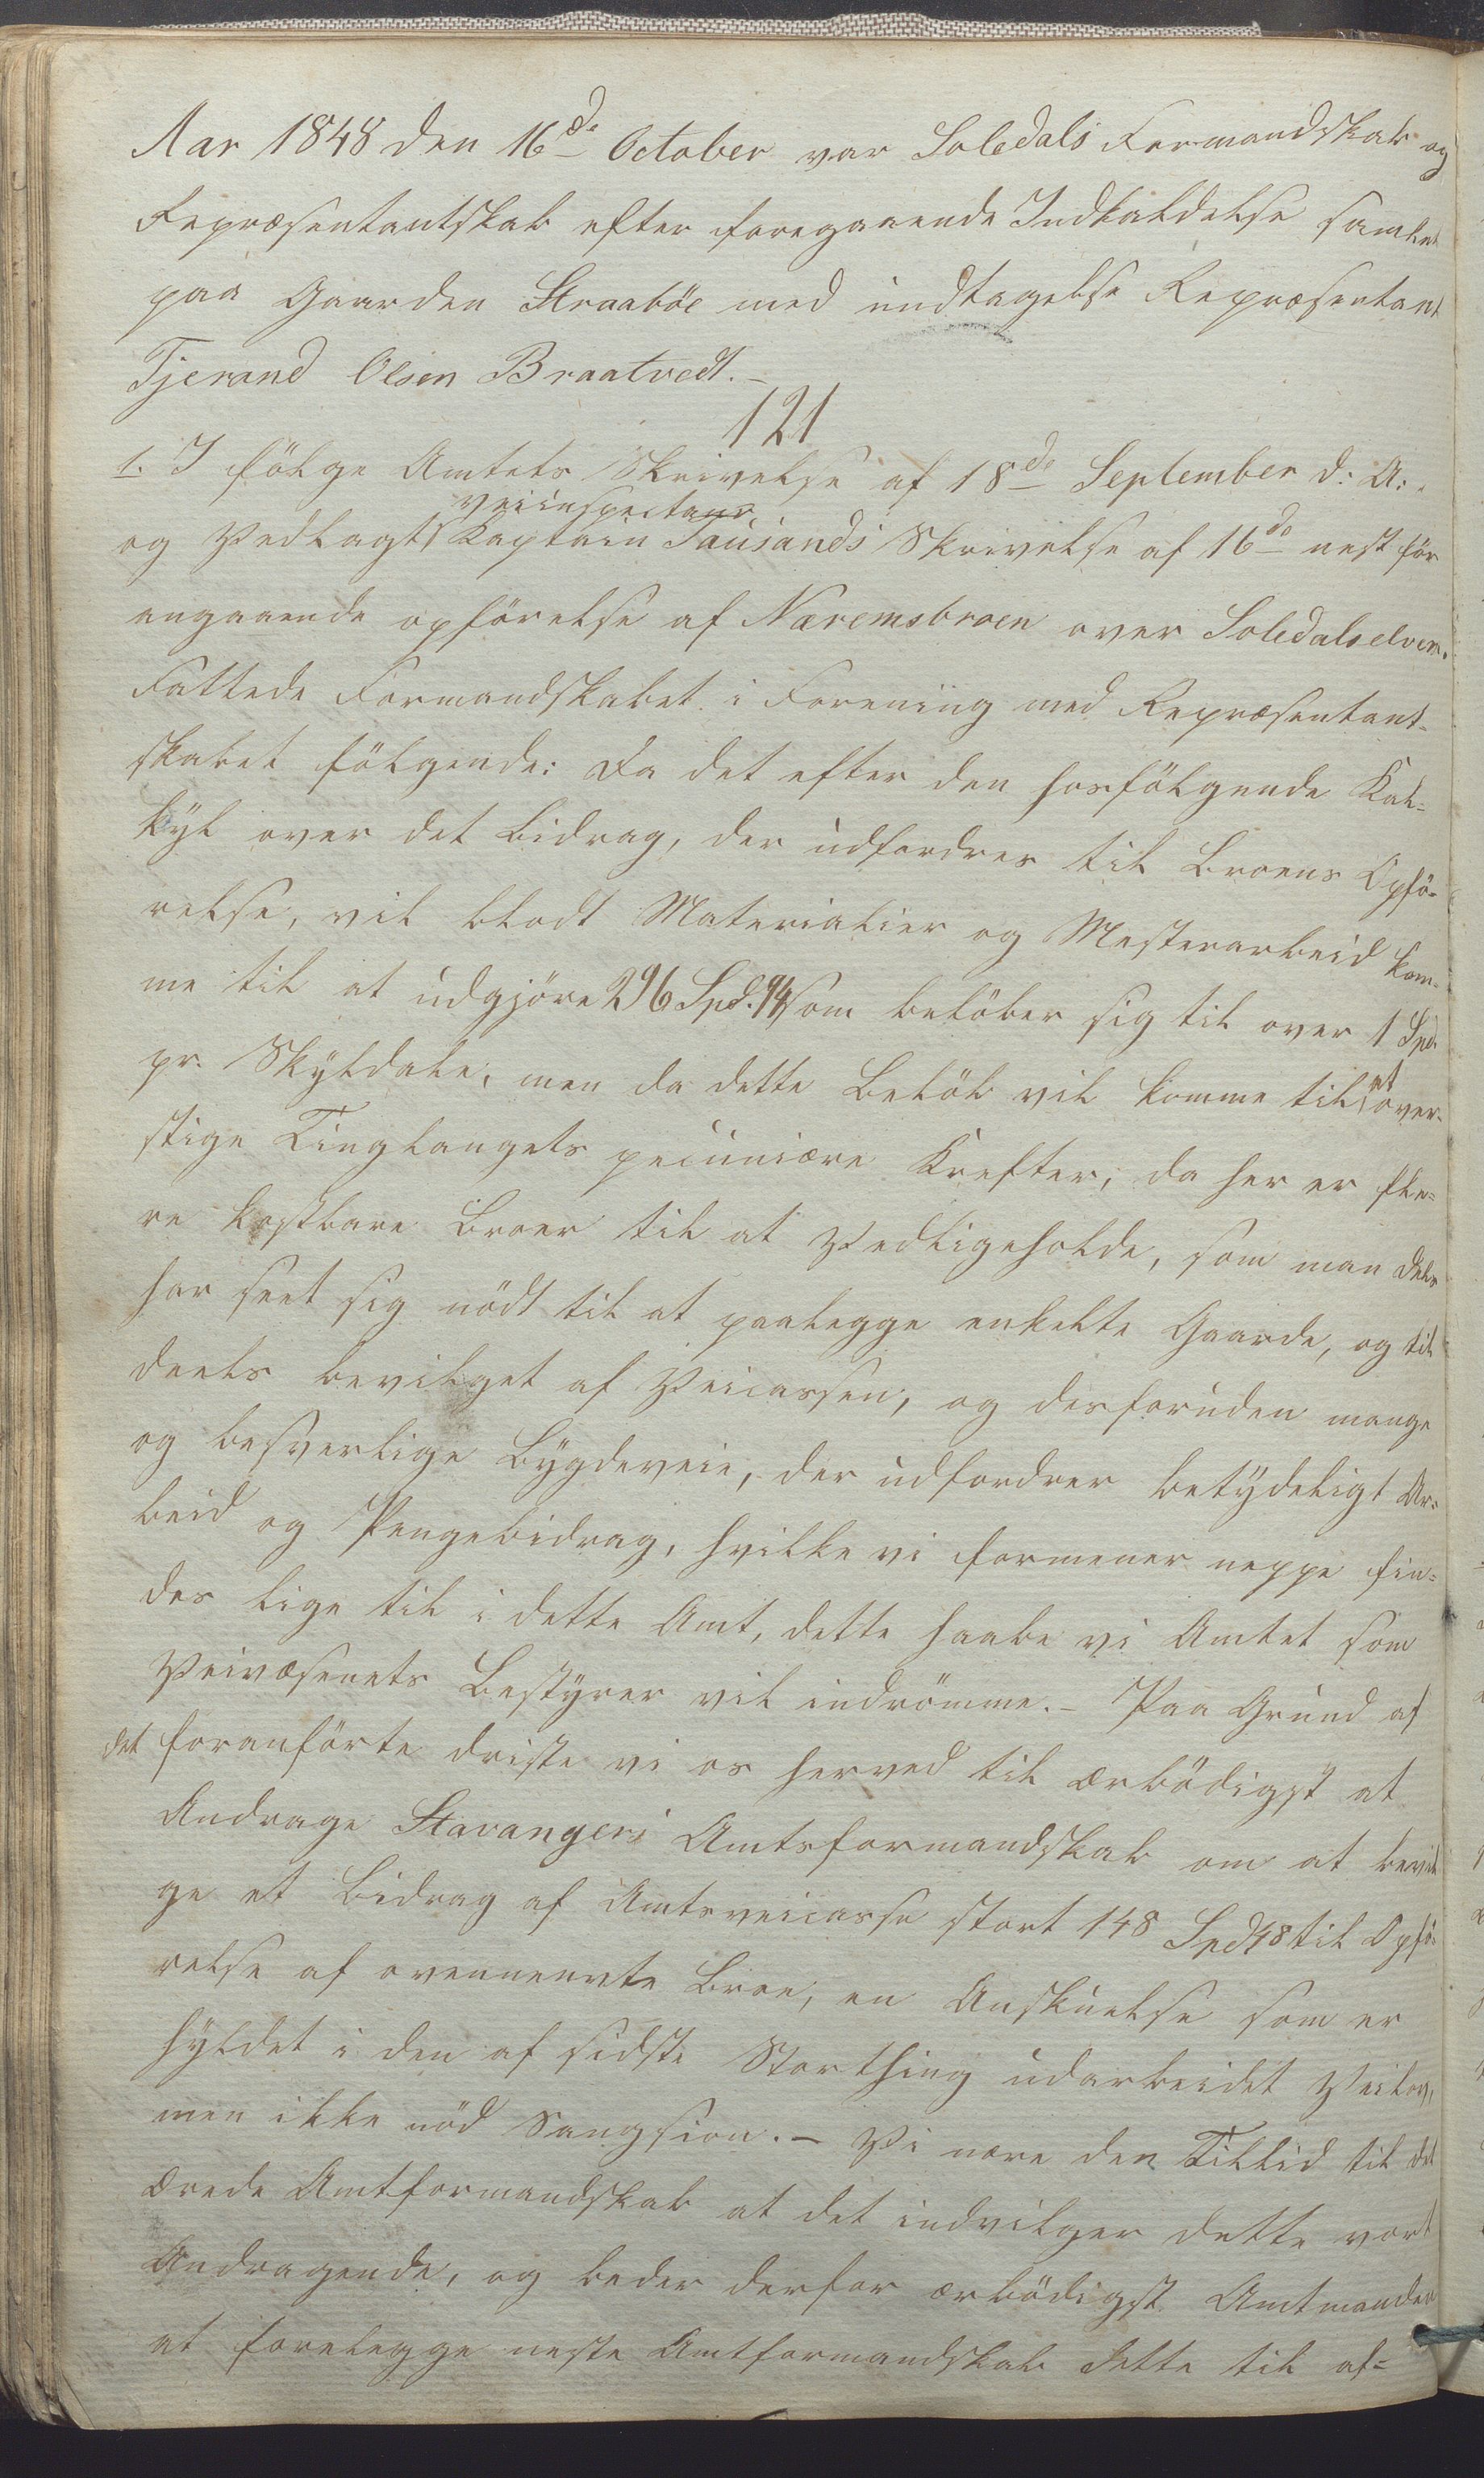 Aar 1848 den 16de October var Soledals Formandskab og
Repræsentantskab efter foregaaende Indkaldelse samlet
paa Gaarden Straabøe med undtagelse Repræsentant
Tjerand Olsen Braatvedt. –
121
1. I fölge Amtets Skrivelse af 18de September d: A:
veiinspecteur
og Vedlagt Kaptain Tausands Skrivelse af 16de nest för
angaaende opförelse af Næremsbroen over Soledalselven.
Fattede Formandskabet i Forening med Repræsentant-
skabet fölgende: Da det efter den hosfölgende Kal-
kyl over det Bidrag, der udfordres til Broens Opfö-
relse, vil blodt Materialier og Mesterarbeid kom-
me til at udgjöre 296 Spd. 94 som belöber sig til over 1 Spd.
pr. Skyldale, men da dette Belöb vil komme til at over-
stige Tinglaugets pecuniære Krefter, da her er fle-
re kostbare Broer til at Vedligeholde, som man dels
har seet sig nödt til at paalegge enkelte Gaarde, og til
deels bevilget af Veicassen, og desforuden mange
og besverlige Bygdeveie, der udfordrer betydeligt Ar-
beid og Pengebidrag, hvilke vi formener neppe fin-
des lige til i dette Amt, dette haabe vi Amtet som
Veivæsenets Bestyrer vil indrömme. – Paa Grund af
det foranförte driste vi os herved til ærbödigst at
Andrage Stavangers Amtsformandskab om at bevil
ge et Bidrag af Amtsveicasse stort 148 Spd 48 til Opfö-
relse af ovennevnte Broe, en Anskuelse som er
hyldet i den af sidste Storthing udarbeidet Veilov,
men ikke nöd Sangsion. – Vi nære den Tillid til det
ærede Amtformandskab at det indvilger dette vort
Andragende, og beder derfor ærbödigst Amtmanden
at forelegge neste Amtformandskab dette til af-